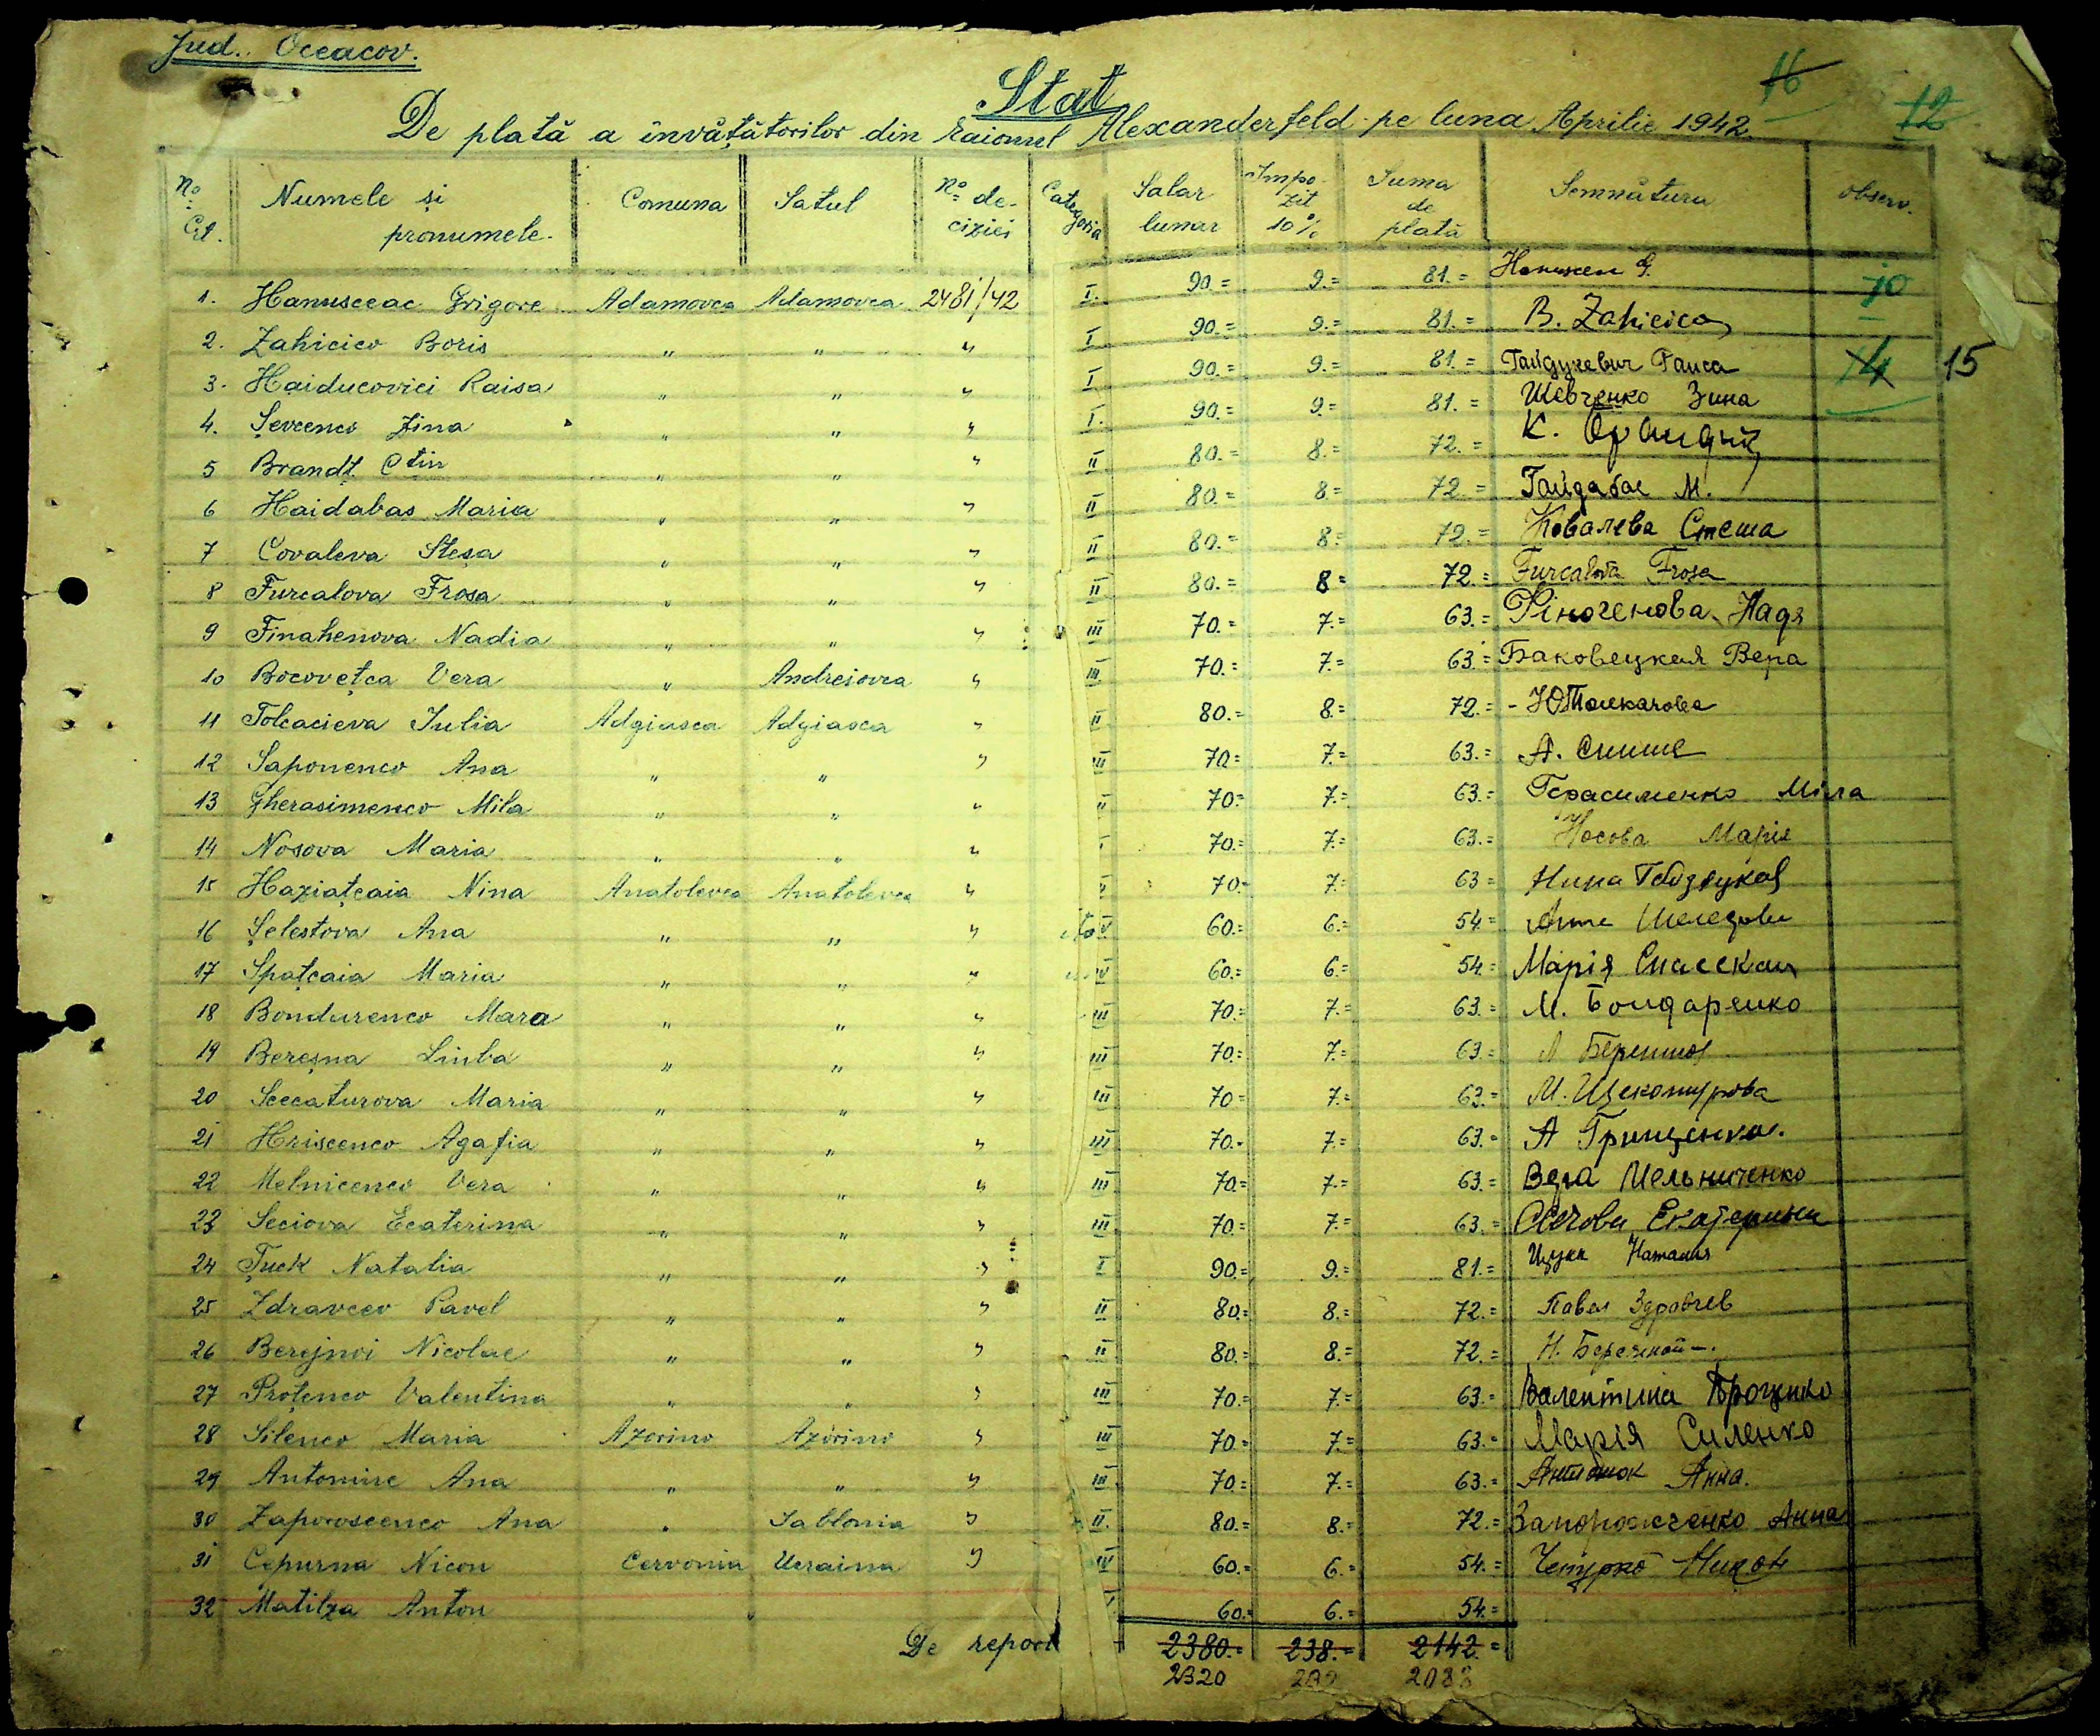 Jud. Oceacov.
16 12
Stat
De plată a învățătorilor din raionul Alexanderfeld pe luna Aprilie 1942.
No. Crt. Numele și pronumele. Comuna Satul No. deciziei Categoria Salar lunar Impozit 10% Suma de plată Semnătura Observ.
1. Hanusceac Grigore Adamovca Adamovca 2481/42 I. 90.= 9.= 81.= 10
2. Zahicico Boris " " " I 90.= 9.= 81.= B. Zahicico
3. Haiducovici Raisa " " " I 90.= 9.= 81.= Гайдукевич Раиса 14 15
4. Șevcenco Zina " " " I. 90.= 9.= 81.= Шевченко Зина
5 Brandt Ctin " " " II 80.= 8.= 72.= К.
6 Haidabas Maria " " " II 80.= 8.= 72.= Гайдабас М.
7 Covaleva Steșa " " " II 80.= 8.= 72.= Ковалева Стеша
8 Furcalova Frosa " " " II 80.= 8= 72.= Furcalova Frosa
9 Finahenova Nadia " " " III 70.= 7.= 63.= Фіногенова Надя
10 Bocovețca Vera " Andreiovca " III 70.= 7.= 63.= Баковецкая Вера
11 Tolcacieva Iulia Adgiasca Adgiasca " II 80.= 8.= 72.= Ю Толкачова
12 Saponenco Ana " " " III 70= 7.= 63.= А.
13 Gherasimenco Mila " " " " 70.= 7.= 63.= Герасименко Міла
14 Nosova Maria " " " 70.= 7.= 63.= Носова Марія
15 Haziatcaia Nina Anatolevca Anatolevca " " 70.= 7.= 63= Нина
16 Șelestova Ana " " " 60.= 6.= 54.=
17 Spațcaia Maria " " " IV 60.= 6.= 54.= Марія Спасская
18 Bondarenco Mara " " " III 70.= 7.= 63.= М. Бондаренко
19 Bereșna Liuba " " " III 70.= 7.= 63.=
20 Scecaturova Maria " " " III 70= 7.= 63.= М. Щекотурова
21 Hriscenco Agafia " " " III 70.= 7.= 63.= А Грищенко.
22 Melnicenco Vera " " " III 70.= 7.= 63.= Вера Мельниченко
23 Seciova Ecaterina " " " III 70= 7.= 63.= Сечова Екатерина
24 Țuck Natalia " " " I 90.= 9.= 81.= Цукк Наталия
25 Zdravcev Pavel " " " II 80.= 8.= 72.= Павел Здравчев
26 Berejnoi Nicolae " " " II 80.= 8.= 72.= Н. Бережной
27 Proțenco Valentina " " " III 70.= 7.= 63.= Валентина Проценко
28 Silenco Maria Azorino Azorino " III 70= 7.= 63.= Марія Силенко
29 Antoniuc Ana " " " III 70.= 7.= 63.= Антонюк Анна.
30 Zaporoscenco Ana " Iablonia " II. 80.= 8.= 72.= Запорожченко Анна
31 Cepurna Nicon Cervonia Ucraina " IV 60.= 6.= 54.= Никон
32 Matilza Anton 60.= 6.= 54.=
De report 2380.= 238.= 2142.=
2320 232 2088